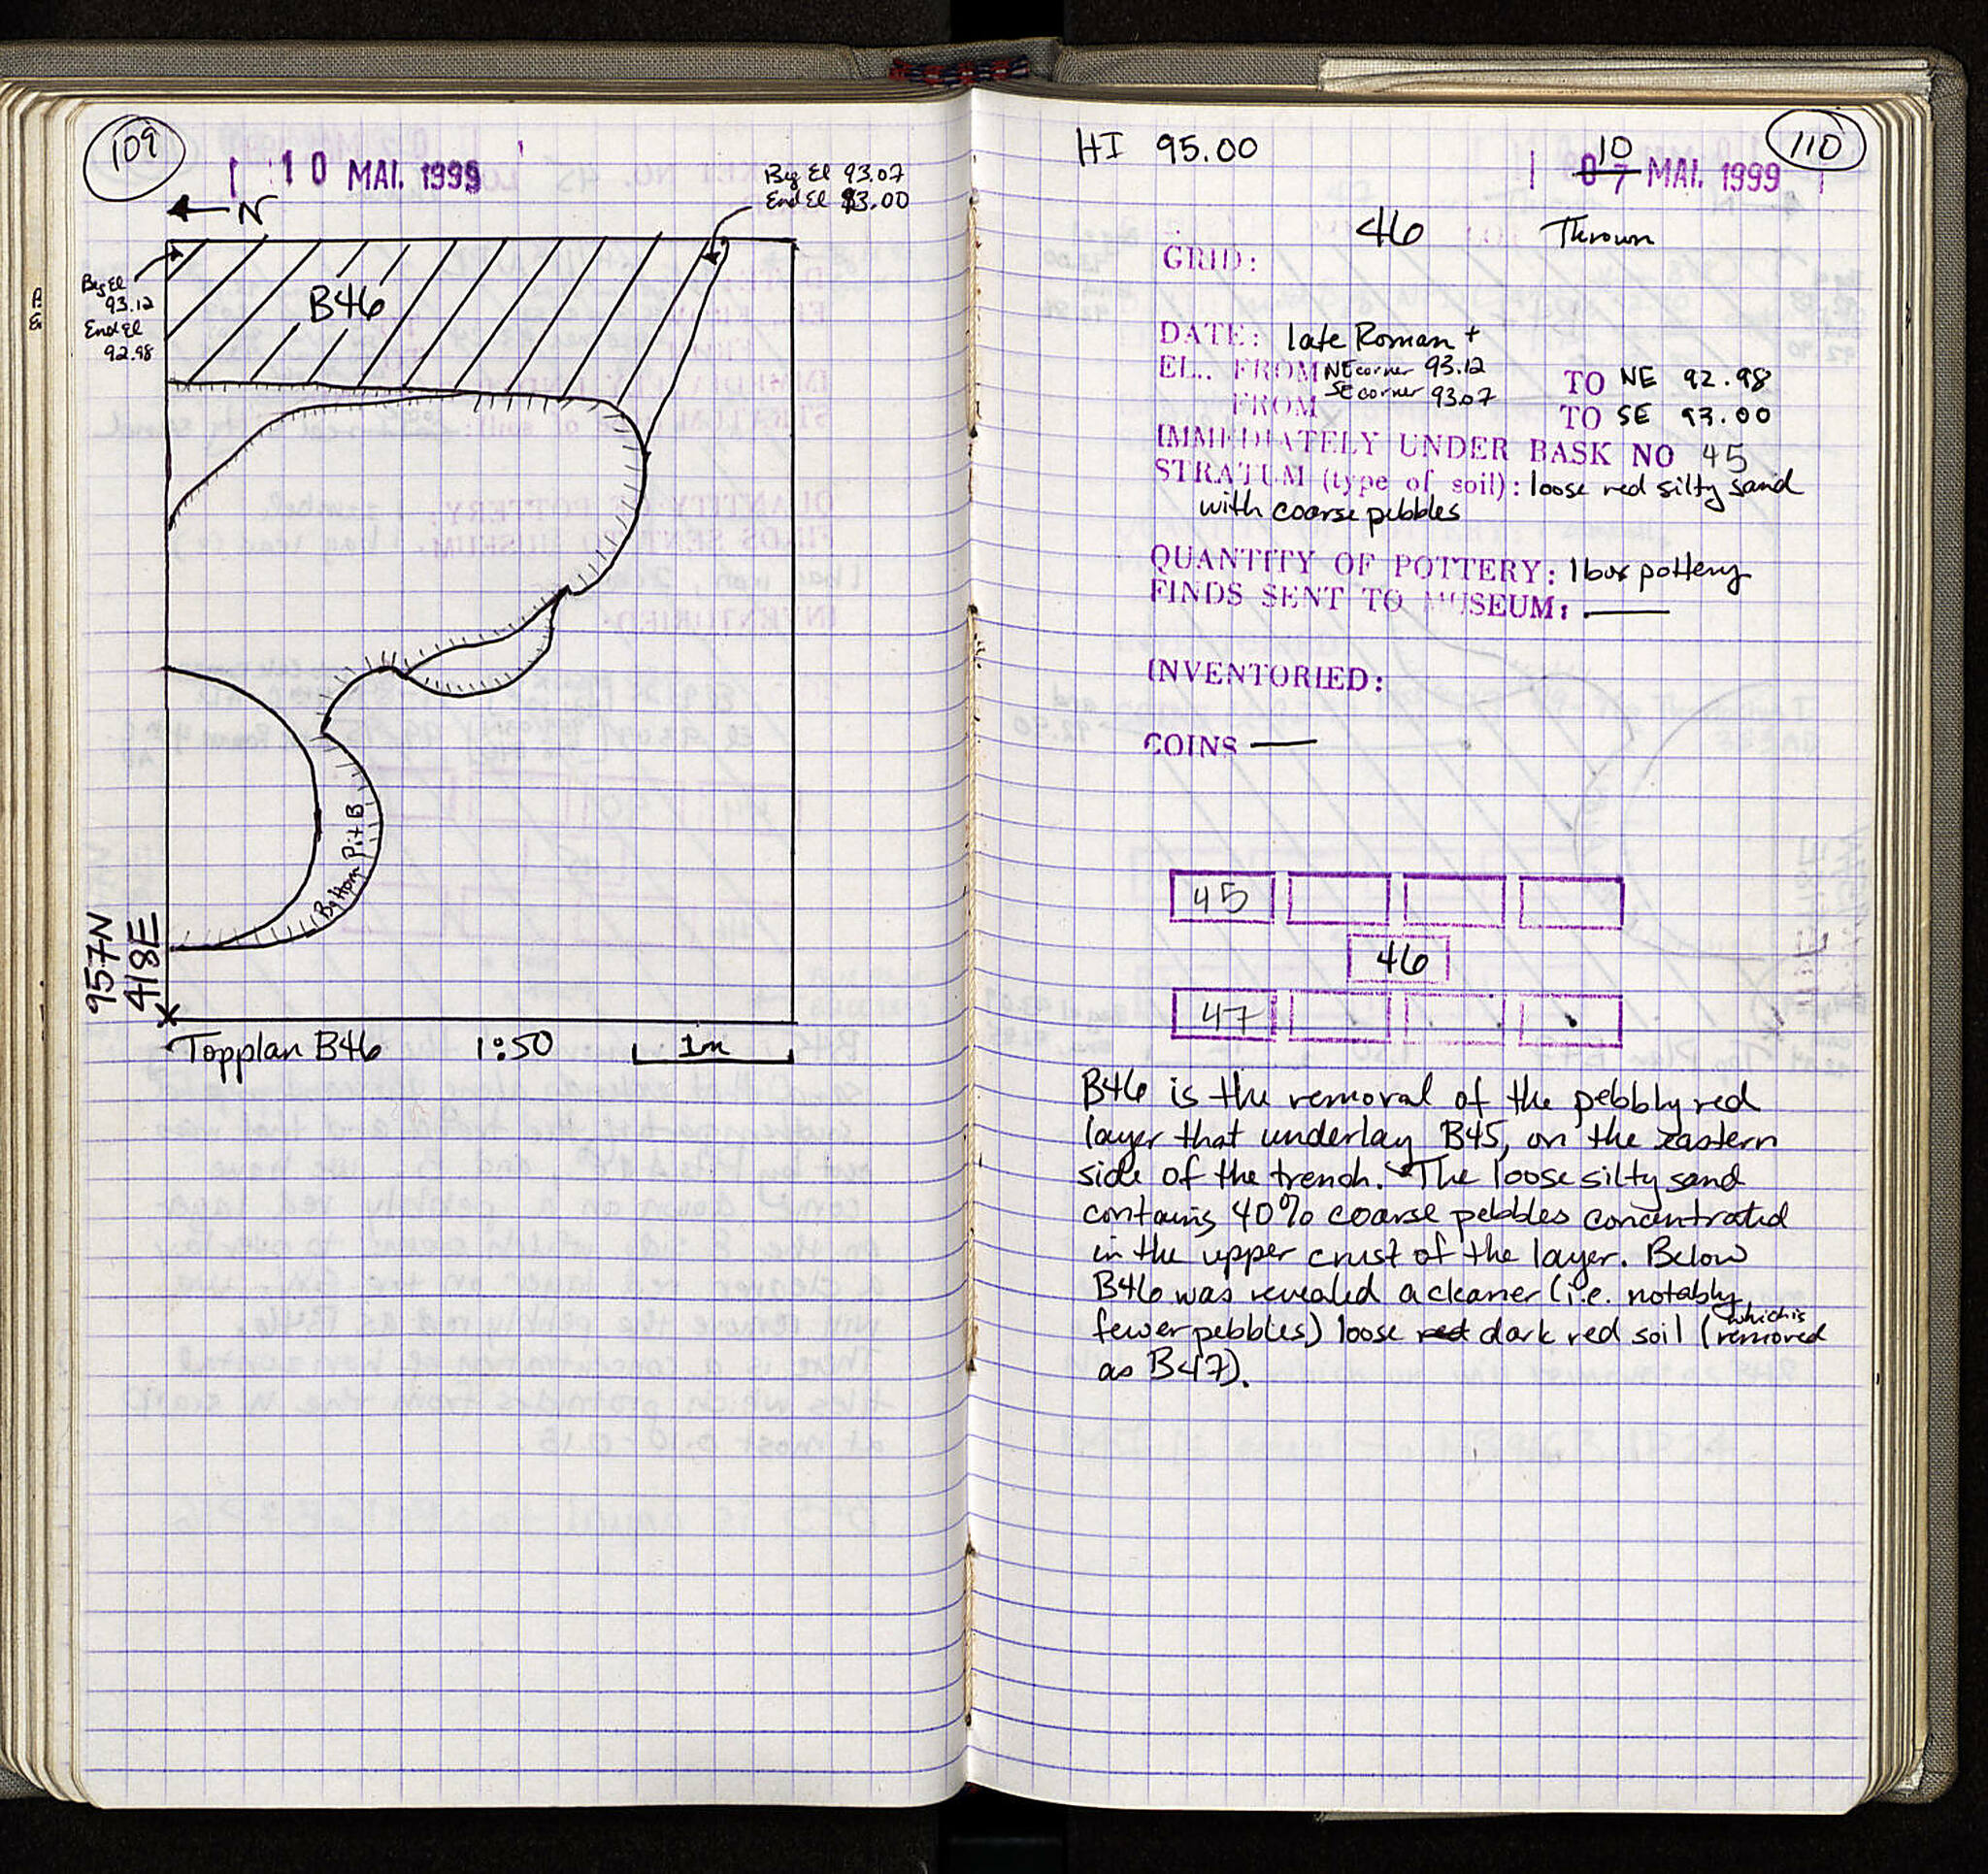 109
10 MAI. 1999
← N
Beg El 93.07
End El 93.00
Beg El
93.12
End El
92.98
B46
Bottom Pit B
957N
418E
Topplan B46 1:50 1m
HI 95.00
10
07 MAI. 1999
110
46 Thrown
GRID:
DATE: late Roman +
EL.. FROM NE corner 93.12 TO NE 92.98
FROM SE corner 93.07 TO SE 93.00
IMMEDIATELY UNDER BASK NO 45
STRATUM (type of soil): loose red silty sand
with coarse pebbles
QUANTITY OF POTTERY: 1 box pottery
FINDS SENT TO MUSEUM: —
INVENTORIED:
COINS —
45
46
47
B46 is the removal of the pebbly red
layer that underlay B45, on the eastern
side of the trench. The loose silty sand
contains 40% coarse pebbles concentrated
in the upper crust of the layer. Below
B46 was revealed a cleaner (i.e. notably
fewer pebbles) loose red dark red soil (which is removed
as B47).